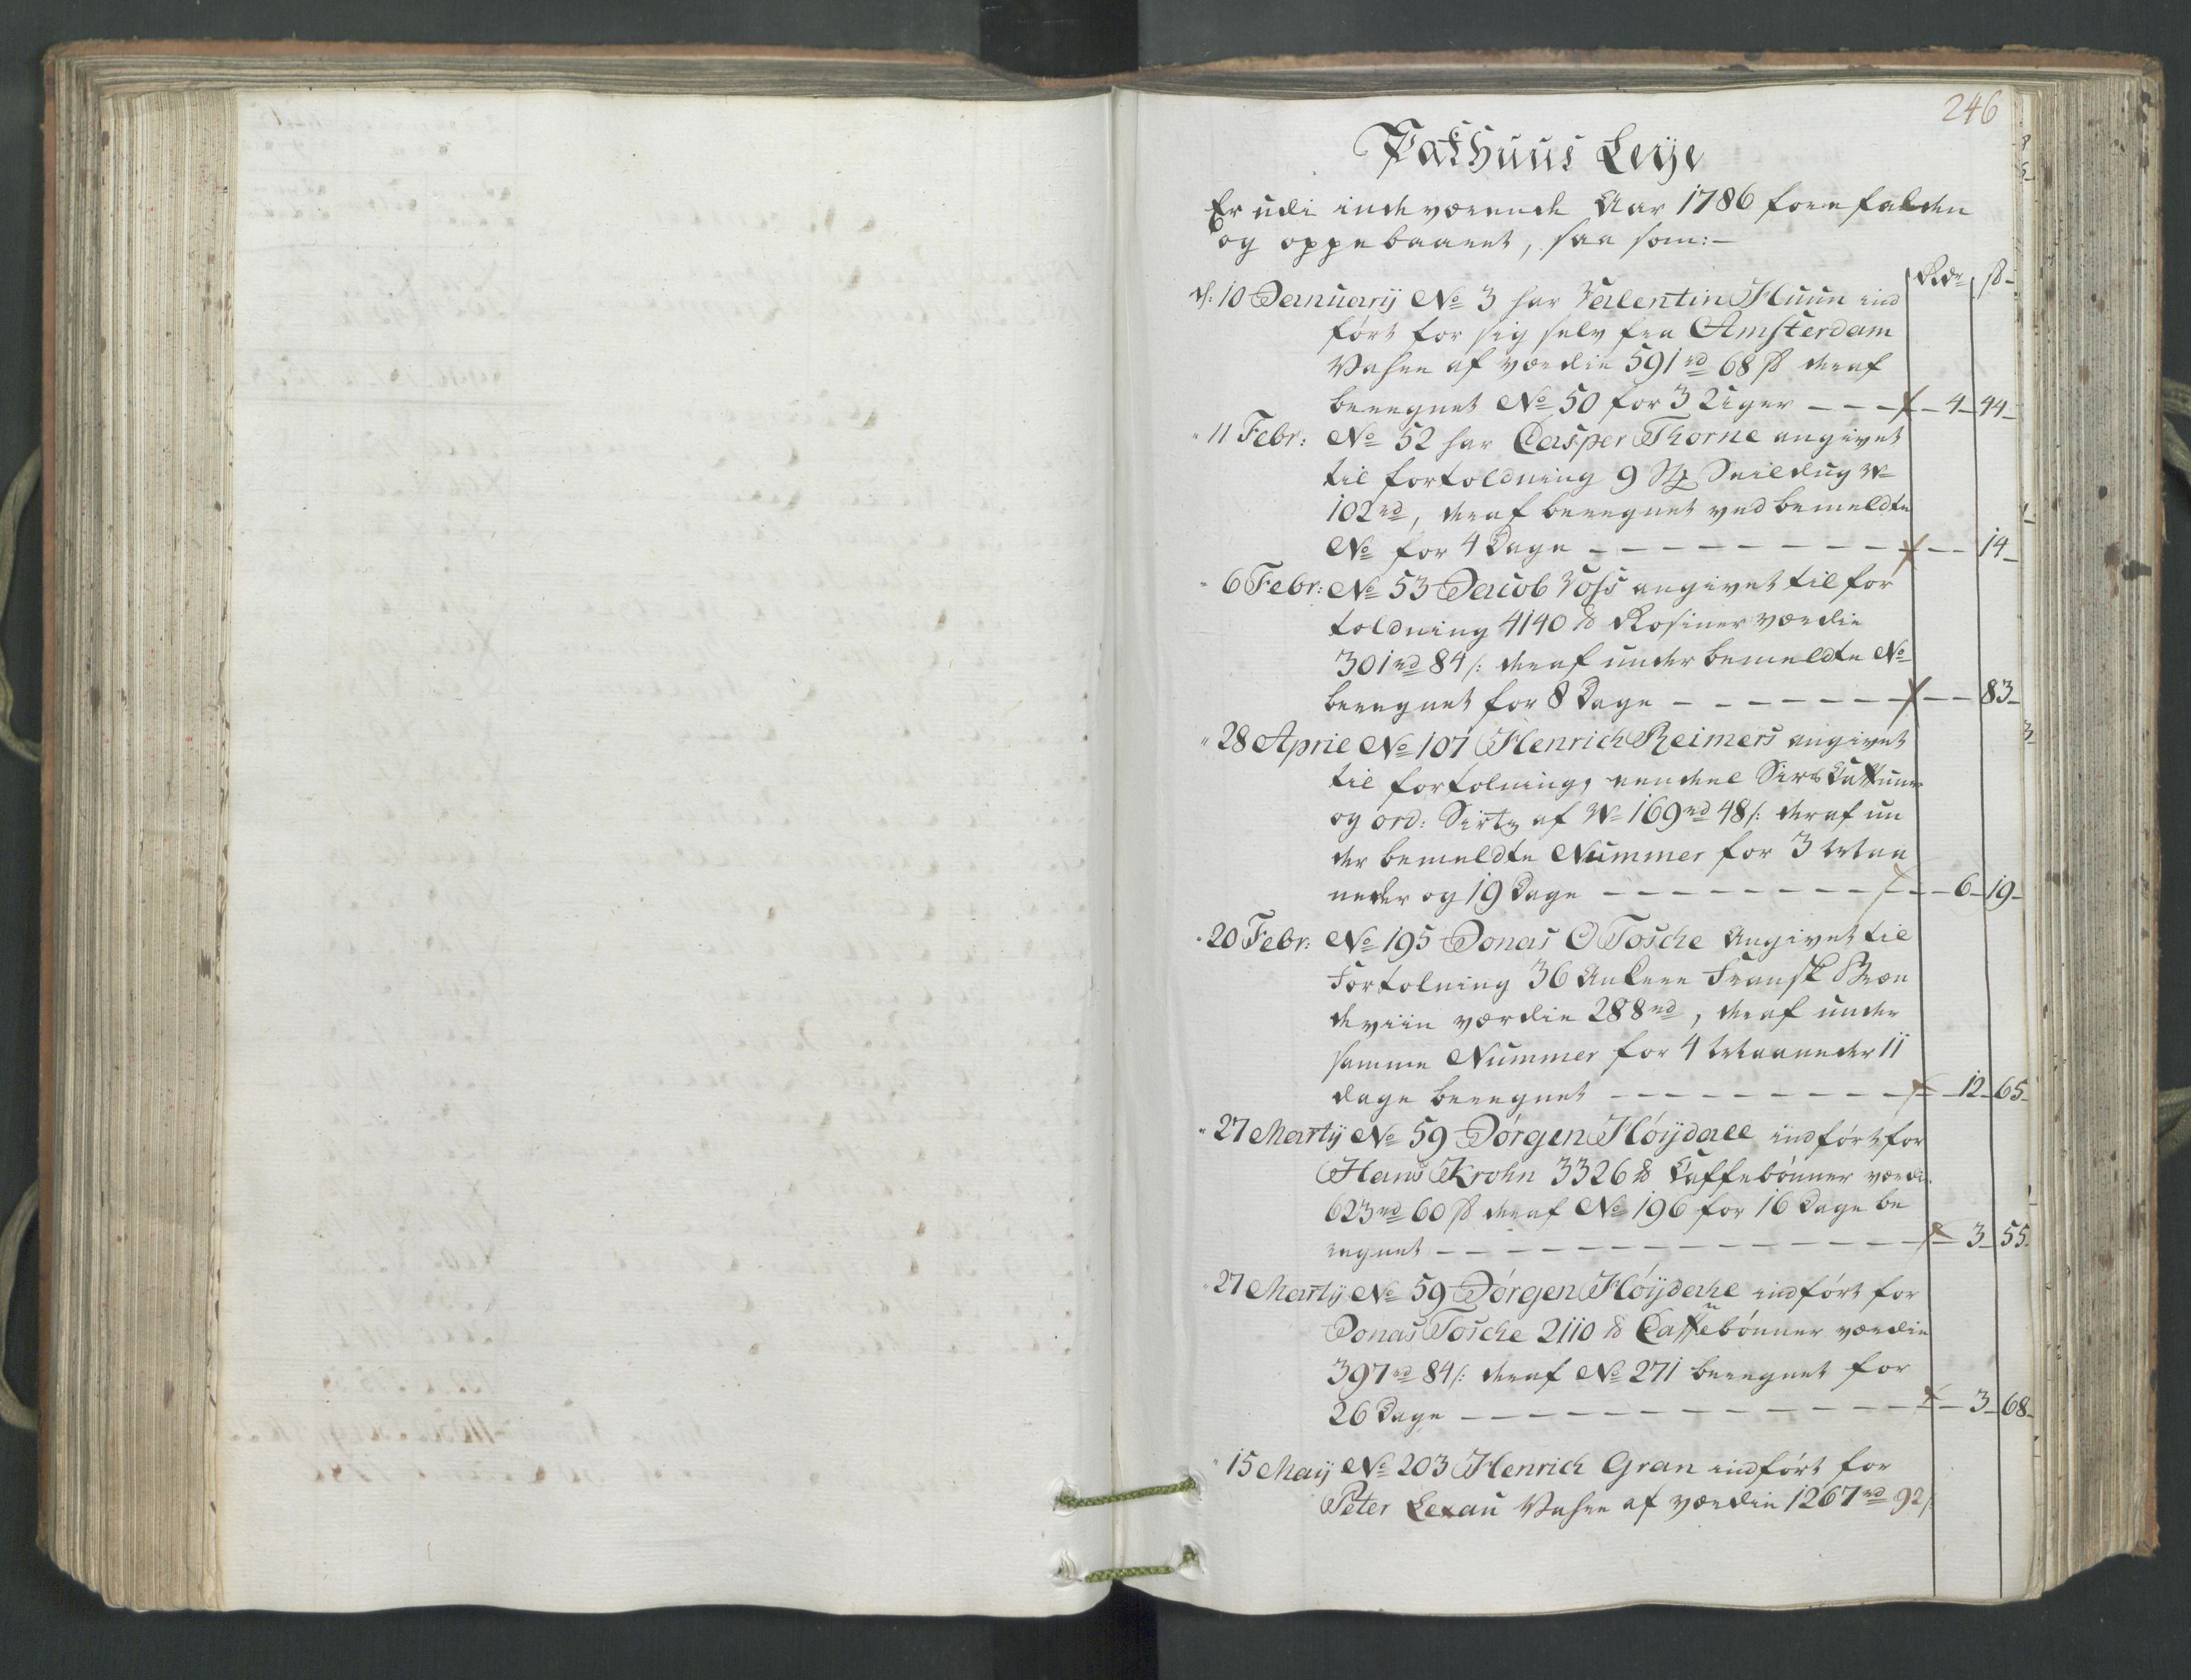 246
Pakhuus Leye
Er udi indeværende Aar 1786 forefalden
og oppebaaret, saa som:-
Rdr ß
d: 10 Januarij No 3 har Valentin Huun ind
ført for sig selv fra Amsterdam
Vahre af værdie 591 rd 68 ß deraf
bereegnet No 50 for 3 Uger - - - 4 44
" 11 Febr: No 52 har Casper Thorne angivet
til fortoldning 9 St Seildug W
102 rd, deraf bereegnet ved bemeldte
No for 4 Dage - - - 14
" 6 Febr: No 53 Jacob Voss angivet til for
toldning 4140 ℔ Rosiner værdie
301 rd 84 /: deraf under bemeldte No
bereegnet for 8 Dage - - - 83
" 28 April No 107 Henrich Reimers angivet
til fortolning, eendeel Sirs Cattuner
og ord: Sirtz af W 169 rd 48 /: deraf un
der bemeldte Nummer for 3 Maa
neder og 19 Dage - - - 6 19
" 20 Febr: No 195 Jonas Tosche Angivet til
Fortolning 36 Ankere Fransk Bræn
deviin værdie 288 rd, deraf under
samme Nummer for 4 Maaneder 11
dage bereegnet - - - 12 65
" 27 Martij No 59 Jørgen Høijdall indført for
Hans Krohn 3326 ℔ Caffebønner værdi
623 rd 60 ß deraf No 196 for 16 Dage be
regnet - - - 3 55
" 27 Martij No 59 Jørgen Høijdahl indført for
Jonas Tosche 2110 ℔ Caffebønner værdie
397 rd 84 /: deraf No 271 bereegnet for
26 Dage - - - 3 68
" 15 Maij No 203 Henrich Gran indført for
Peter Lexau Vahre af værdie 1267 rd 92 /: